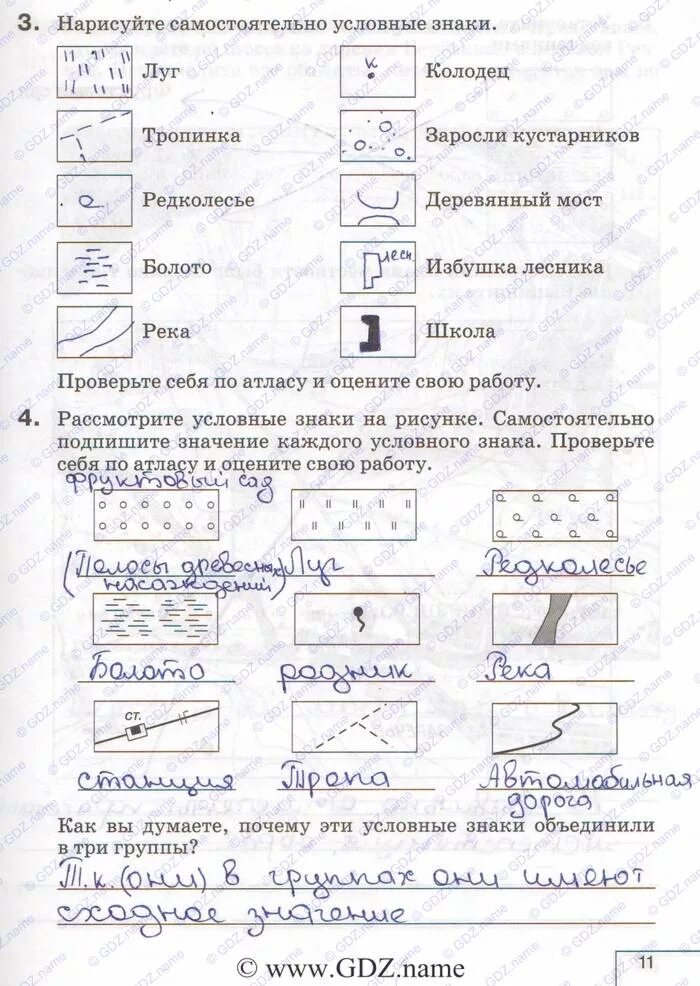 3. Нарисуйте самостоятельно условные знаки.
Луг
К
Колодец
Тропинка
Заросли кустарников
Редколесье
Деревянный мост
Болото
лесн.
Избушка лесника
Река
Школа
Проверьте себя по атласу и оцените свою работу.
4. Рассмотрите условные знаки на рисунке. Самостоятельно
подпишите значение каждого условного знака. Проверьте
себя по атласу и оцените свою работу.
фруктовый сад
(Полосы древесных
насаждений)
Луг
Редколесье
Болото
родник
Река
ст.
станция
Тропа
Автомобильная
дорога
Как вы думаете, почему эти условные знаки объединили
в три группы?
Т.к. (они) в группах они имеют
сходное значение
11
© www.GDZ.name